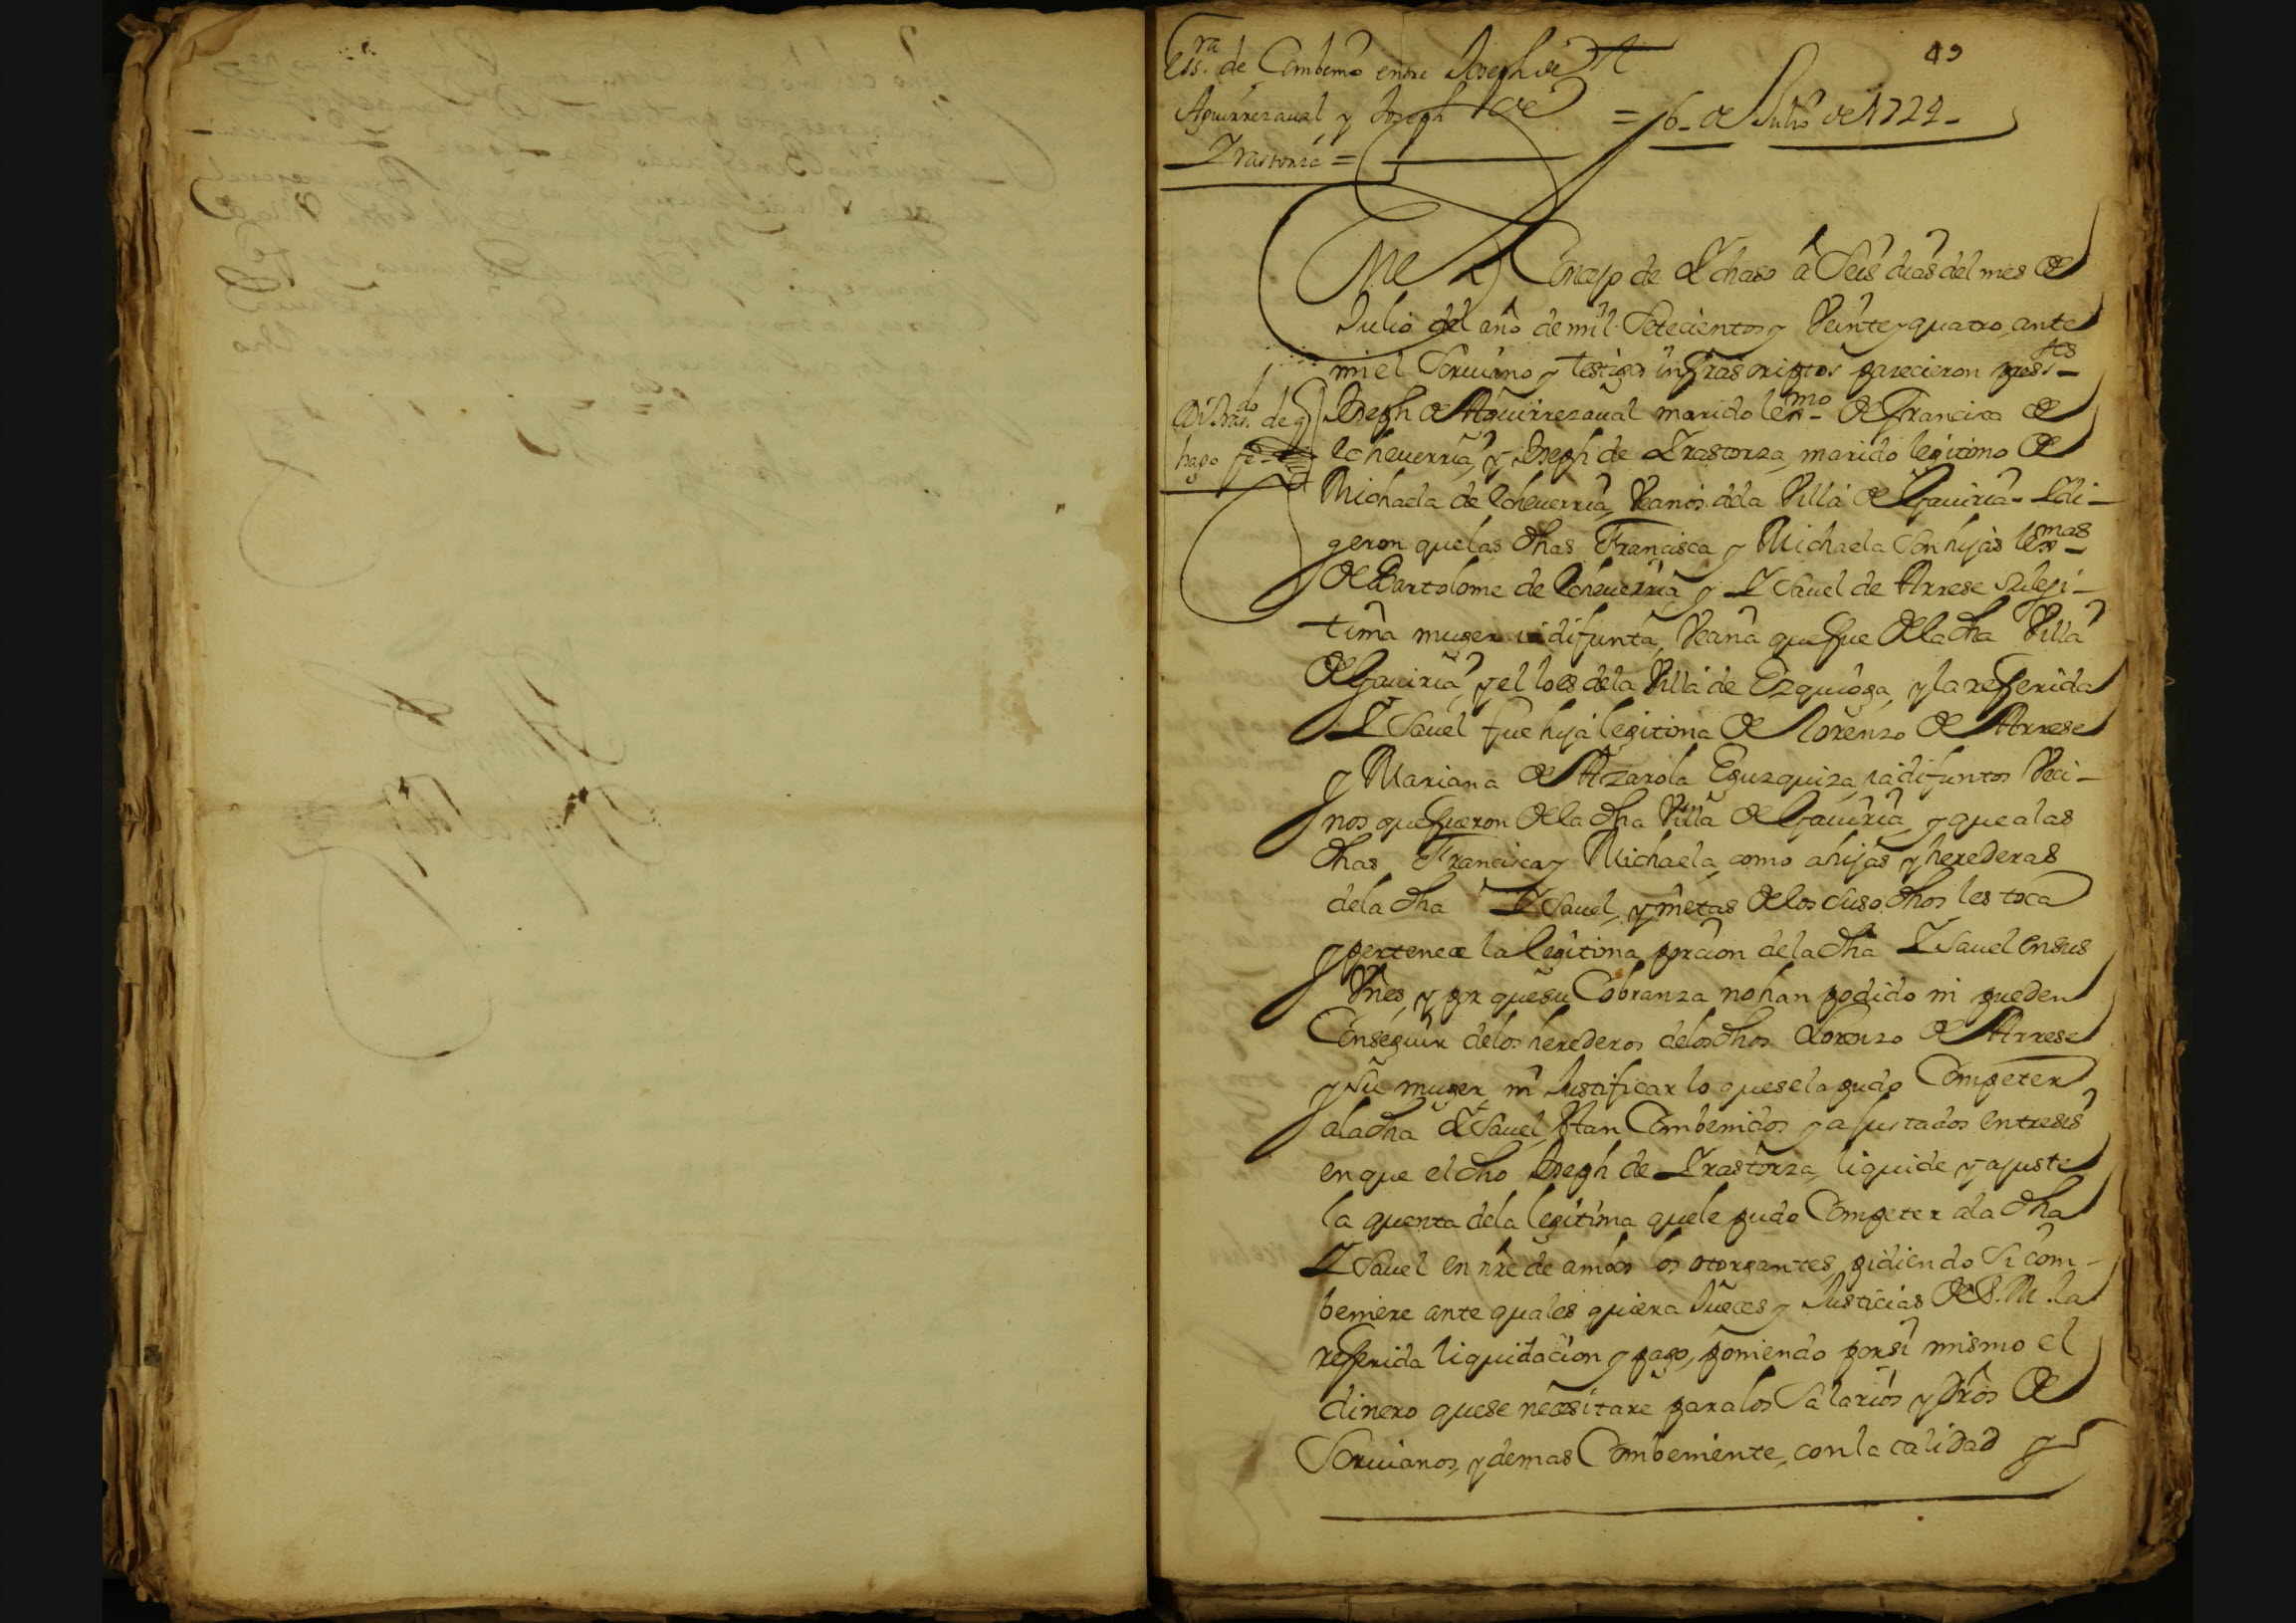 49
Ess.ra de Combenio entre Joseph de
Aguirrezaual y Joseph de
Yrastorza =
= 6 de Julio de 1724
En el Concejo de Ychaso â Seis dias del mes de
Julio del año de mil Setecientos y Veinte y quatro, ante
mi el Scriuano y testigos infrascriptos parecieron press.tes
Joseph de Aguirrezaual marido lexmo de Francisca de
Echeuerria, y Joseph de Yrastorza, marido legitimo de
Michaela de Echeuerria, Veanos dela Villa de Gauiria. Y di-
geron que las dhas Francisca y Michaela son hijas lexmas
de Bartolome de Echeuerria y Ysauel de Arrese su legi-
tima muger ia difunta, Veana que fue de la dha Villa
de Gauiria, y el lo es dela Villa de Ezquioga, y la referida
Ysauel fue hija legitima de Lorenzo de Arrese
y Mariana de Azarola Eguzquiza, ia difuntos Veci-
nos que fueron de la dha Villa de Gauiria, y que a las
dhas Francisca y Michaela, como a hijas y herederas
dela dha Ysauel, y nietas de los suso dhos les toca
y pertenece la legitima porcion dela dha Ysauel en sus
Vnes, y por que su Cobranza no han podido ni pueden
Conseguir delos herederos delos dhos Lorenzo de Arrese
y su muger, ni Justificar lo que se la pudo Competer
ala dha Ysauel, Stan Combenidos y ajustados entre sis
en que el dho Joseph de Yrastorza, liquide y ajuste
la quenta dela legitima que le pudo Competer ala dha
Ysauel en nre de ambos los otorgantes, pidiendo Si com-
beniere ante quales quiera Jueces y Justicias de S. M. la
referida liquidacion y pago, poniendo por si mismo el
dinero que se necesitare para los Salarios y dros de
Scriuanos, y demas Combeniente, con la calidad y
do de q
hago fe